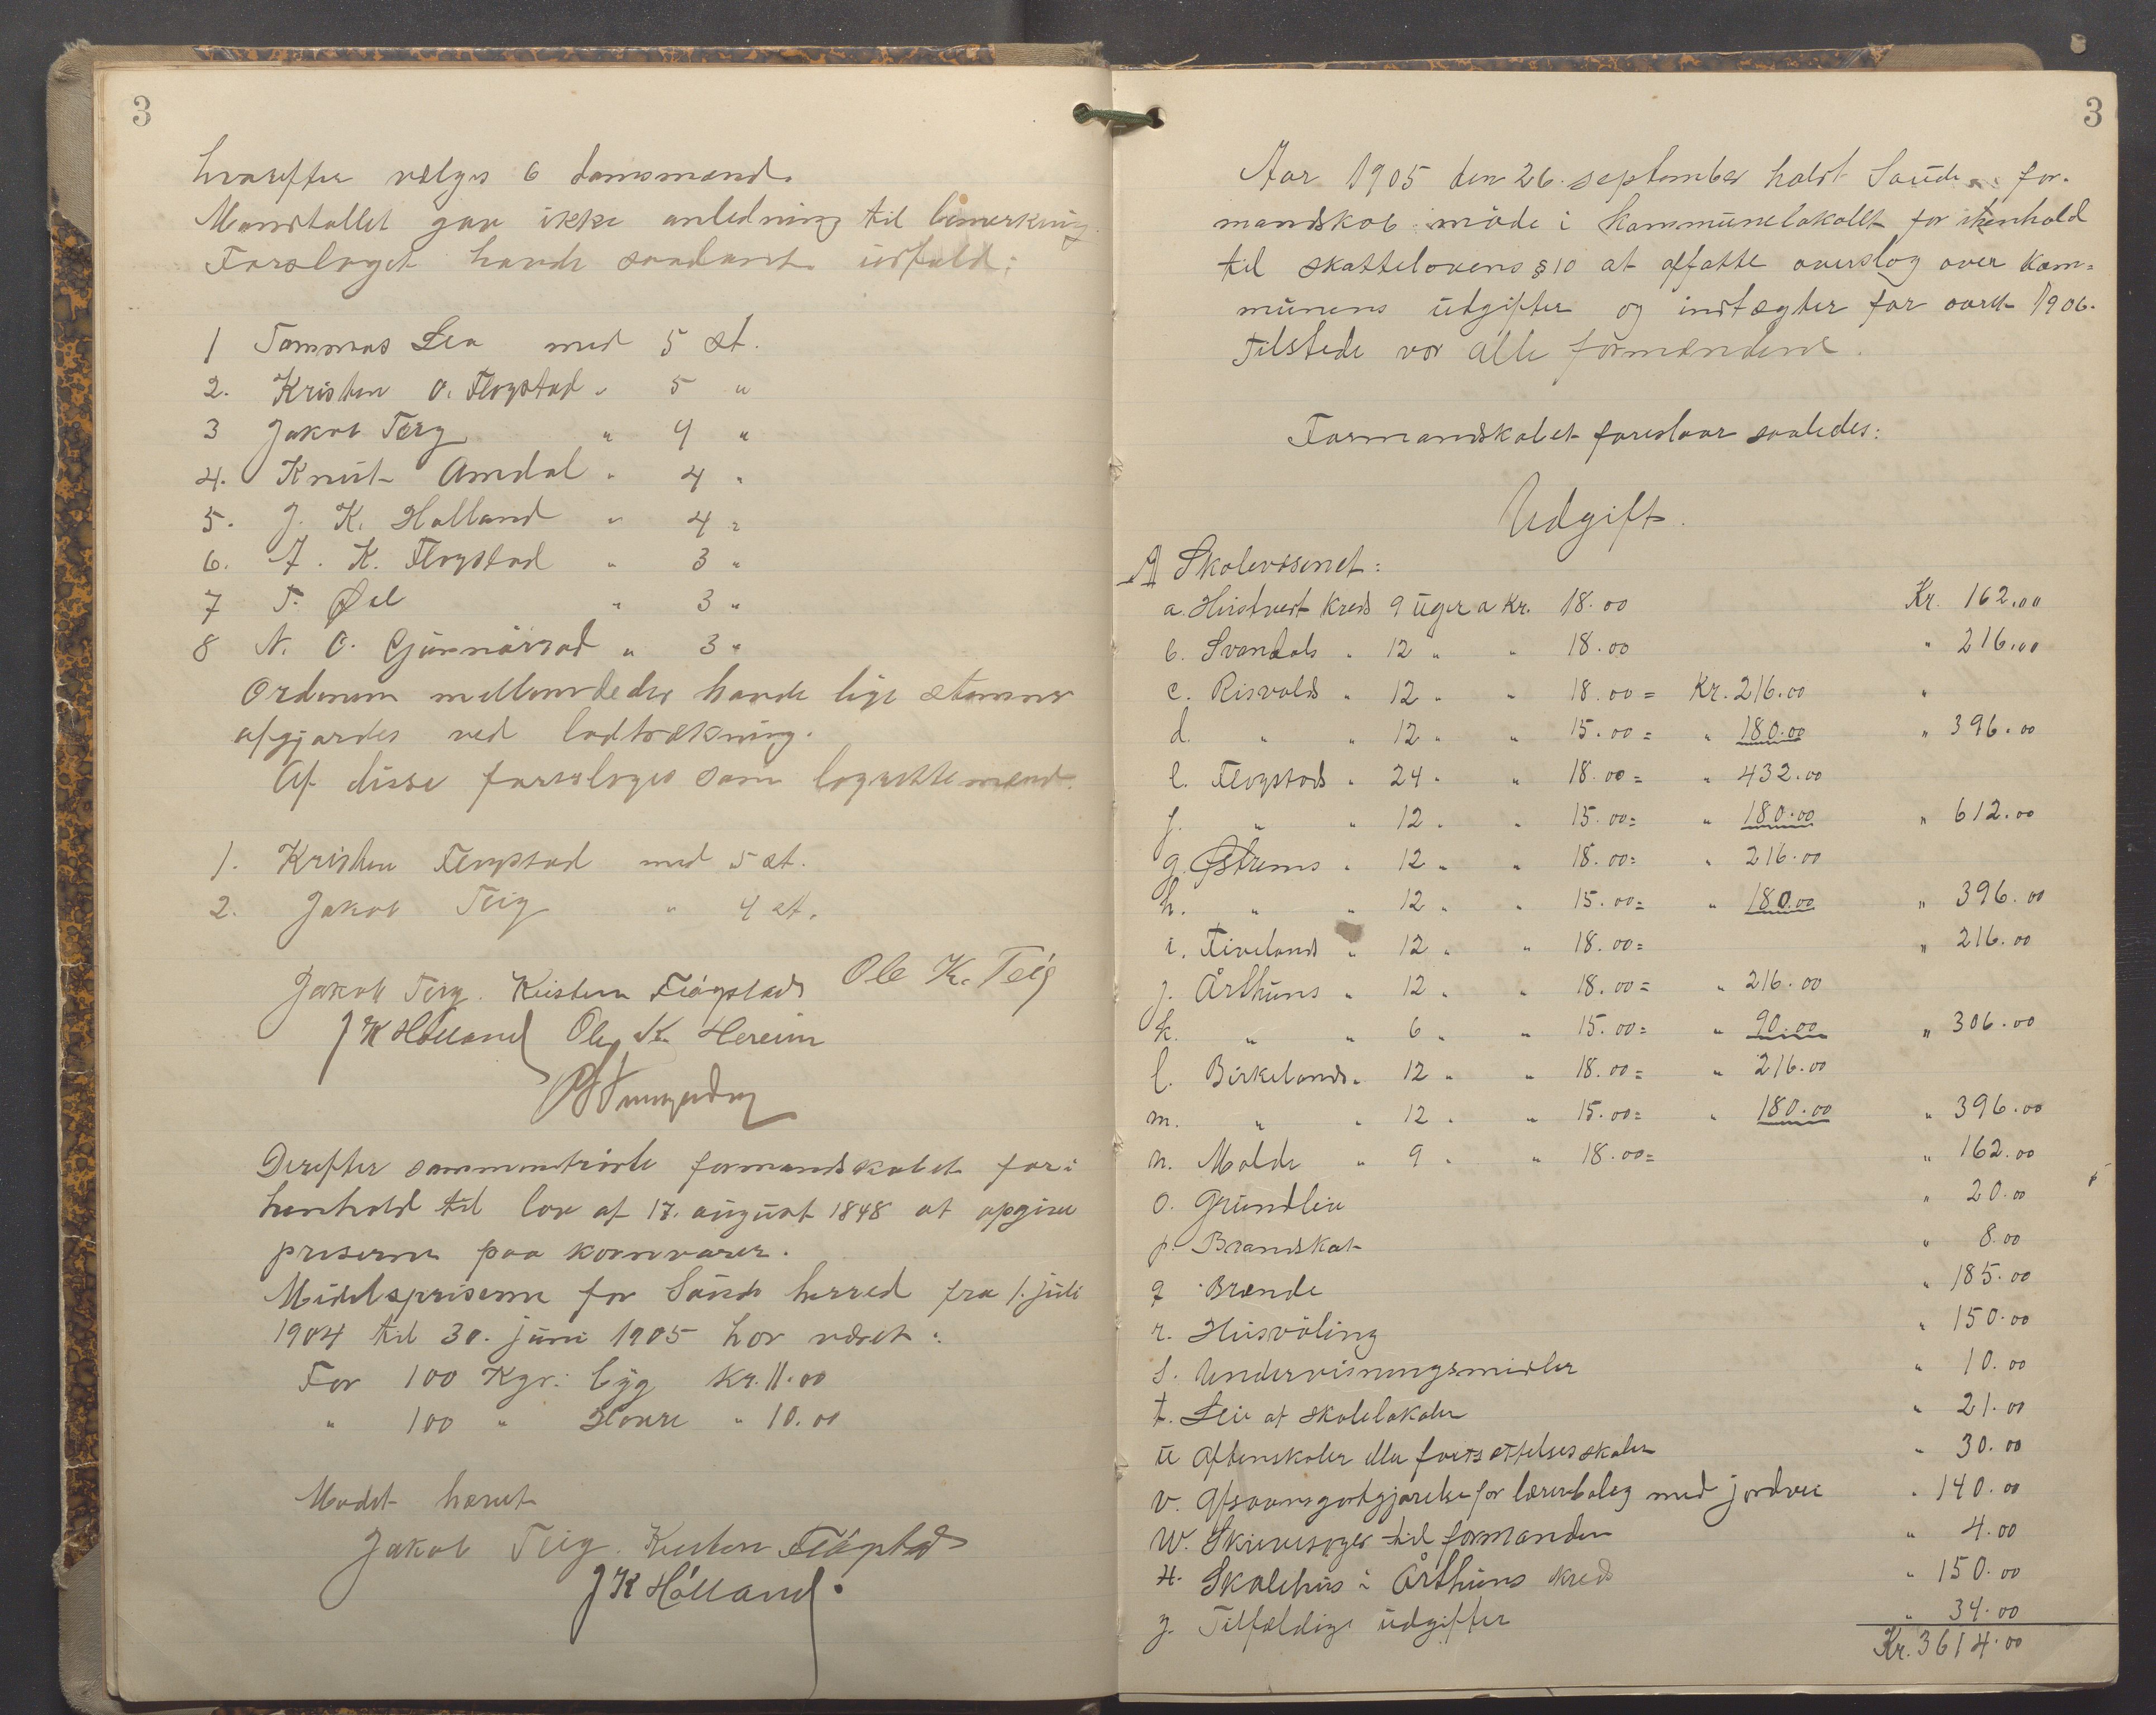 3
hvorefter vælges 6 domsmænd.
Manstallet gav ikke anledning til bemerkning.
Forslaget havde saadant udfald:
1 Tommas Lea med 5 st.
2. Kristen O. Fløgstad " 5 "
3 Jakob Teig " 4 "
4. Knut Amdal " 4 "
5. J. K. Holland " 4 "
6. J. K. Fløgstad " 3 "
7 T. Øie " 3 "
8 N. O. Gjunnarsaa " 3 "
Ordenen mellem de der havde lige stemmer
afgjordes ved lodtrækning.
Af disse foresloges som lagrettemænd.
1. Kristen Fløgstad med 5 st.
2. Jakob Teig " 4 st.
Jakob Teig. Kristen Fløgstad Ole K. Teig
J K Hólland Ole K. Hereim
Derefter sammentraadte formandskabet for i
henhold til lov af 17. august 1848 at opgive
priserne paa kornvarer.
Middelspriserne for Saude herred fra 1. juli
1904 til 30. juni 1905 har været:
For 100 Kgr: byg Kr. 11.00
" 100 " Havre " 10.00
Mødet hævet
Jakob Teig. Kristen Fløgstad
J K Hólland.
3
Aar 1905 den 26. september holdt Saude for-
mandskab møde i kommunelokalet for i henhold
til skattelovens § 10 at affatte overslag over kom=
munens udgifter og indtægter for aaret 1906.
Tilstede var alle formændene.
Formandskabet foreslaar saaledes:
Udgift.
A Skolevæsenet:
a. Hustveit Kreds 9 uger a Kr. 18.00 Kr. 162.00
b. Svandals " 12 " " 18.00 " 216.00
c. Risvolds " 12 " " 18.00 = Kr. 216.00 "
d. " " 12 " " 15.00 = " 180.00 " 396.00
e. Fløgstads " 24 " " 18.00 = " 432.00
f. " " 12 " " 15.00 = " 180.00 " 612.00
g. Østrems " 12 " " 18.00 = " 216.00
h. " " 12 " " 15.00 = " 180.00 " 396.00
i. Fiveland " 12 " " 18.00 = " 216.00
j. Årthuns " 12 " " 18.00 = " 216.00
k. " " 6 " " 15.00 = " 90.00 " 306.00
l. Birkelands " 12 " " 18.00 = " 216.00
m. " " 12 " " 15.00 = " 180.00 " 396.00
n. Molde " 9 " " 18.00 = " 162.00
o. Grundleie " 20.00
p. Brandskat " 8.00
q Brænde " 185.00
r. Husvøling " 150.00
s. Undervisningsmidler " 10.00
t. Leie af skolelokaler " 21.00
u Aftenskoler eller fortsættelsesskoler " 30.00
v. Afsavnsgodtgjørelse for lærerbolig med jordvei " 140.00
w. Skrivesager til formanden " 4.00
x. Skolehus i Årthuns kreds " 150.00
y. Tilfældige udgifter " 34.00
Kr. 3614.00